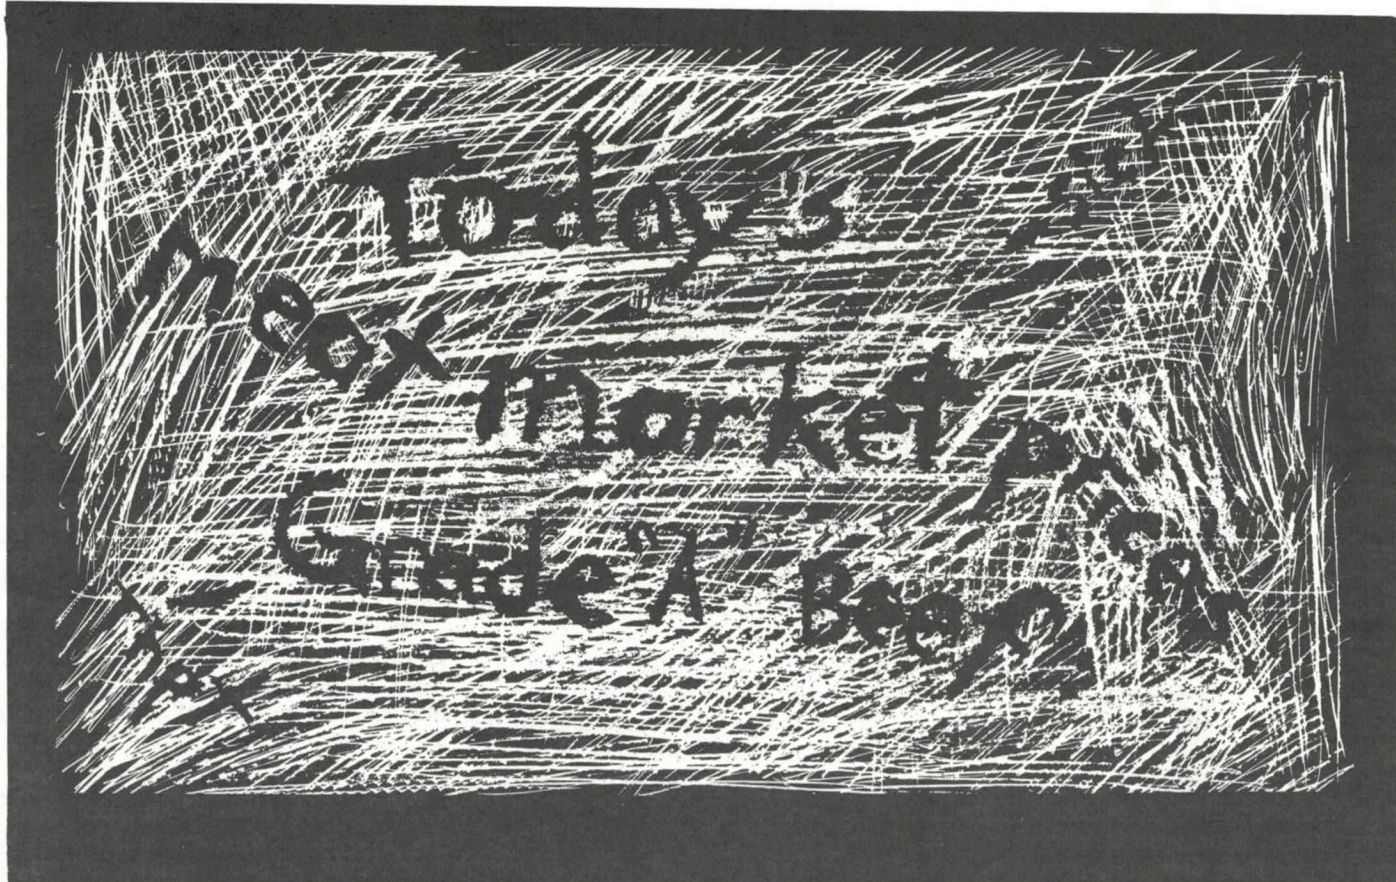 Today's
meat market Prices
Grade "A" Beef